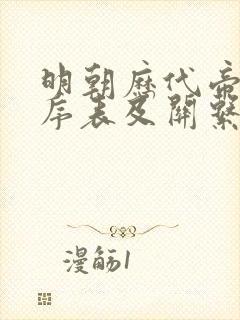 明朝歷代帝
序表及關繫
漫觞1